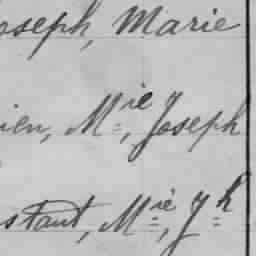 oseph, Marie
ien, M.ie, Joseph
stant, M.ie, J.h